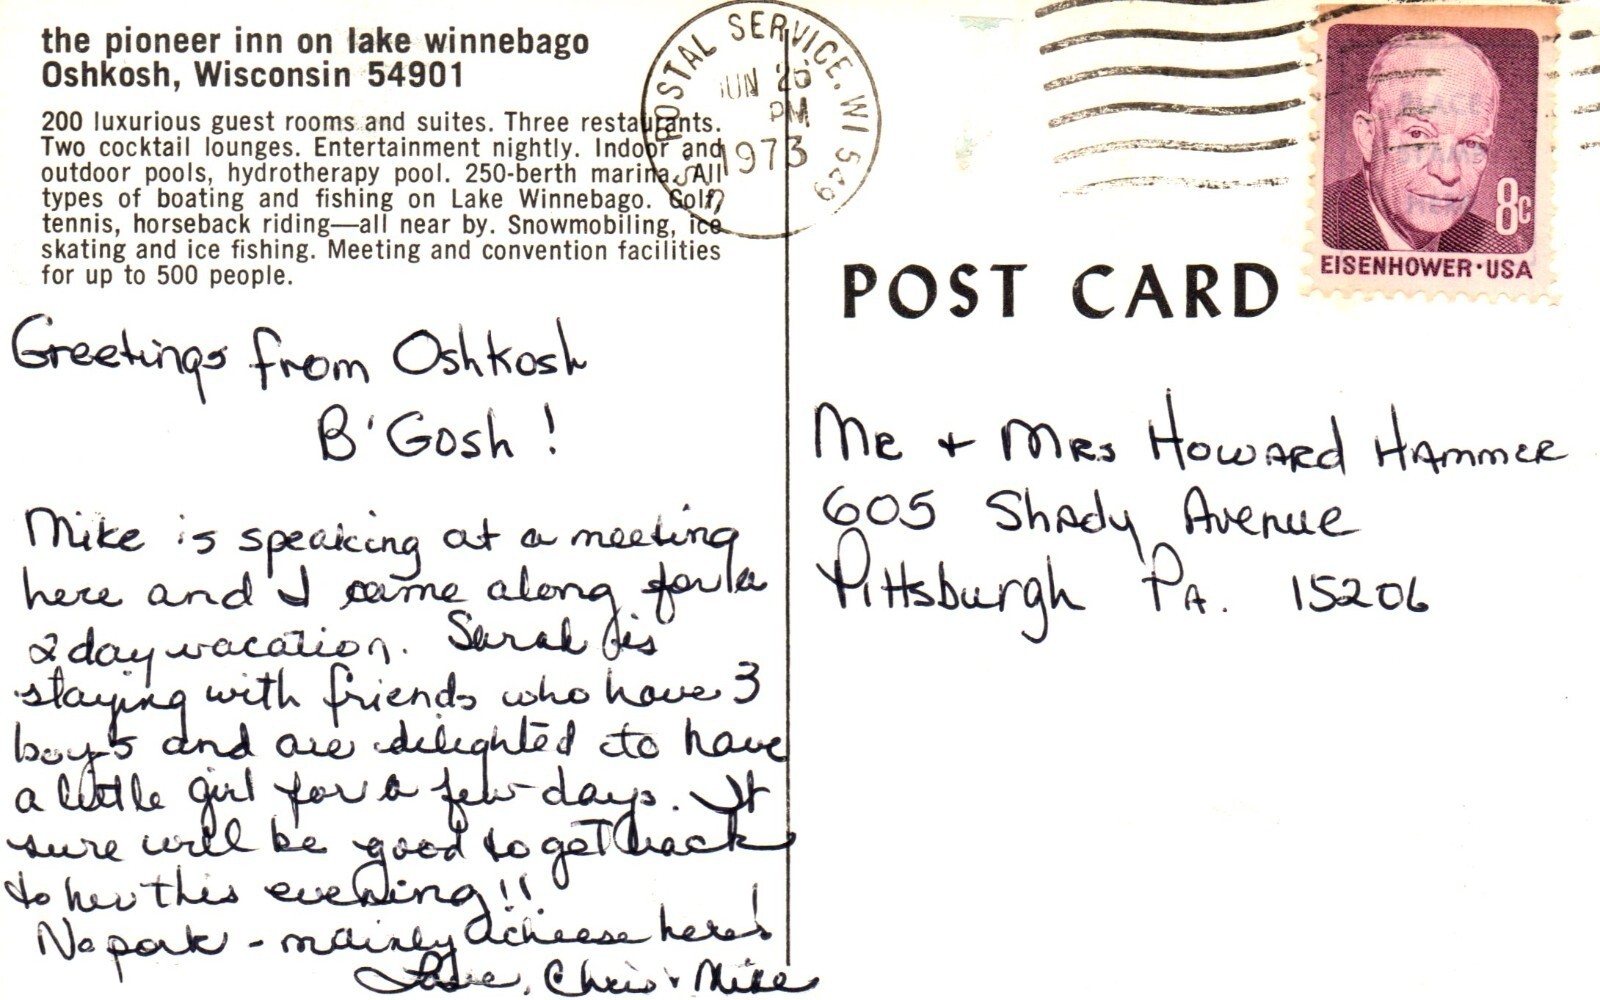 the pioneer inn on lake winnebago
Oshkosh, Wisconsin 54901
200 luxurious guest rooms and suites. Three restaurants.
Two cocktail lounges. Entertainment nightly. Indoor and
outdoor pools, hydrotherapy pool. 250-berth marina. All
types of boating and fishing on Lake Winnebago. Golf,
tennis, horseback riding—all near by. Snowmobiling, ice
skating and ice fishing. Meeting and convention facilities
for up to 500 people.
Greetings from Oshkosh
B'Gosh!
Mike is speaking at a meeting
here and I came along for a
2 day vacation. Sarah is
staying with friends who have 3
boys and are delighted to have
a little girl for a few days. It
sure will be good to get back
to her this evening!!
No pork - mainly cheese here!
Love, Chris + Mike
U.S. POSTAL SERVICE, WI 549
JUN 25
PM
1973
PLACE
STAMP
HERE
8c
EISENHOWER·USA
POST CARD
Mr + Mrs Howard Hammer
605 Shady Avenue
Pittsburgh Pa. 15206